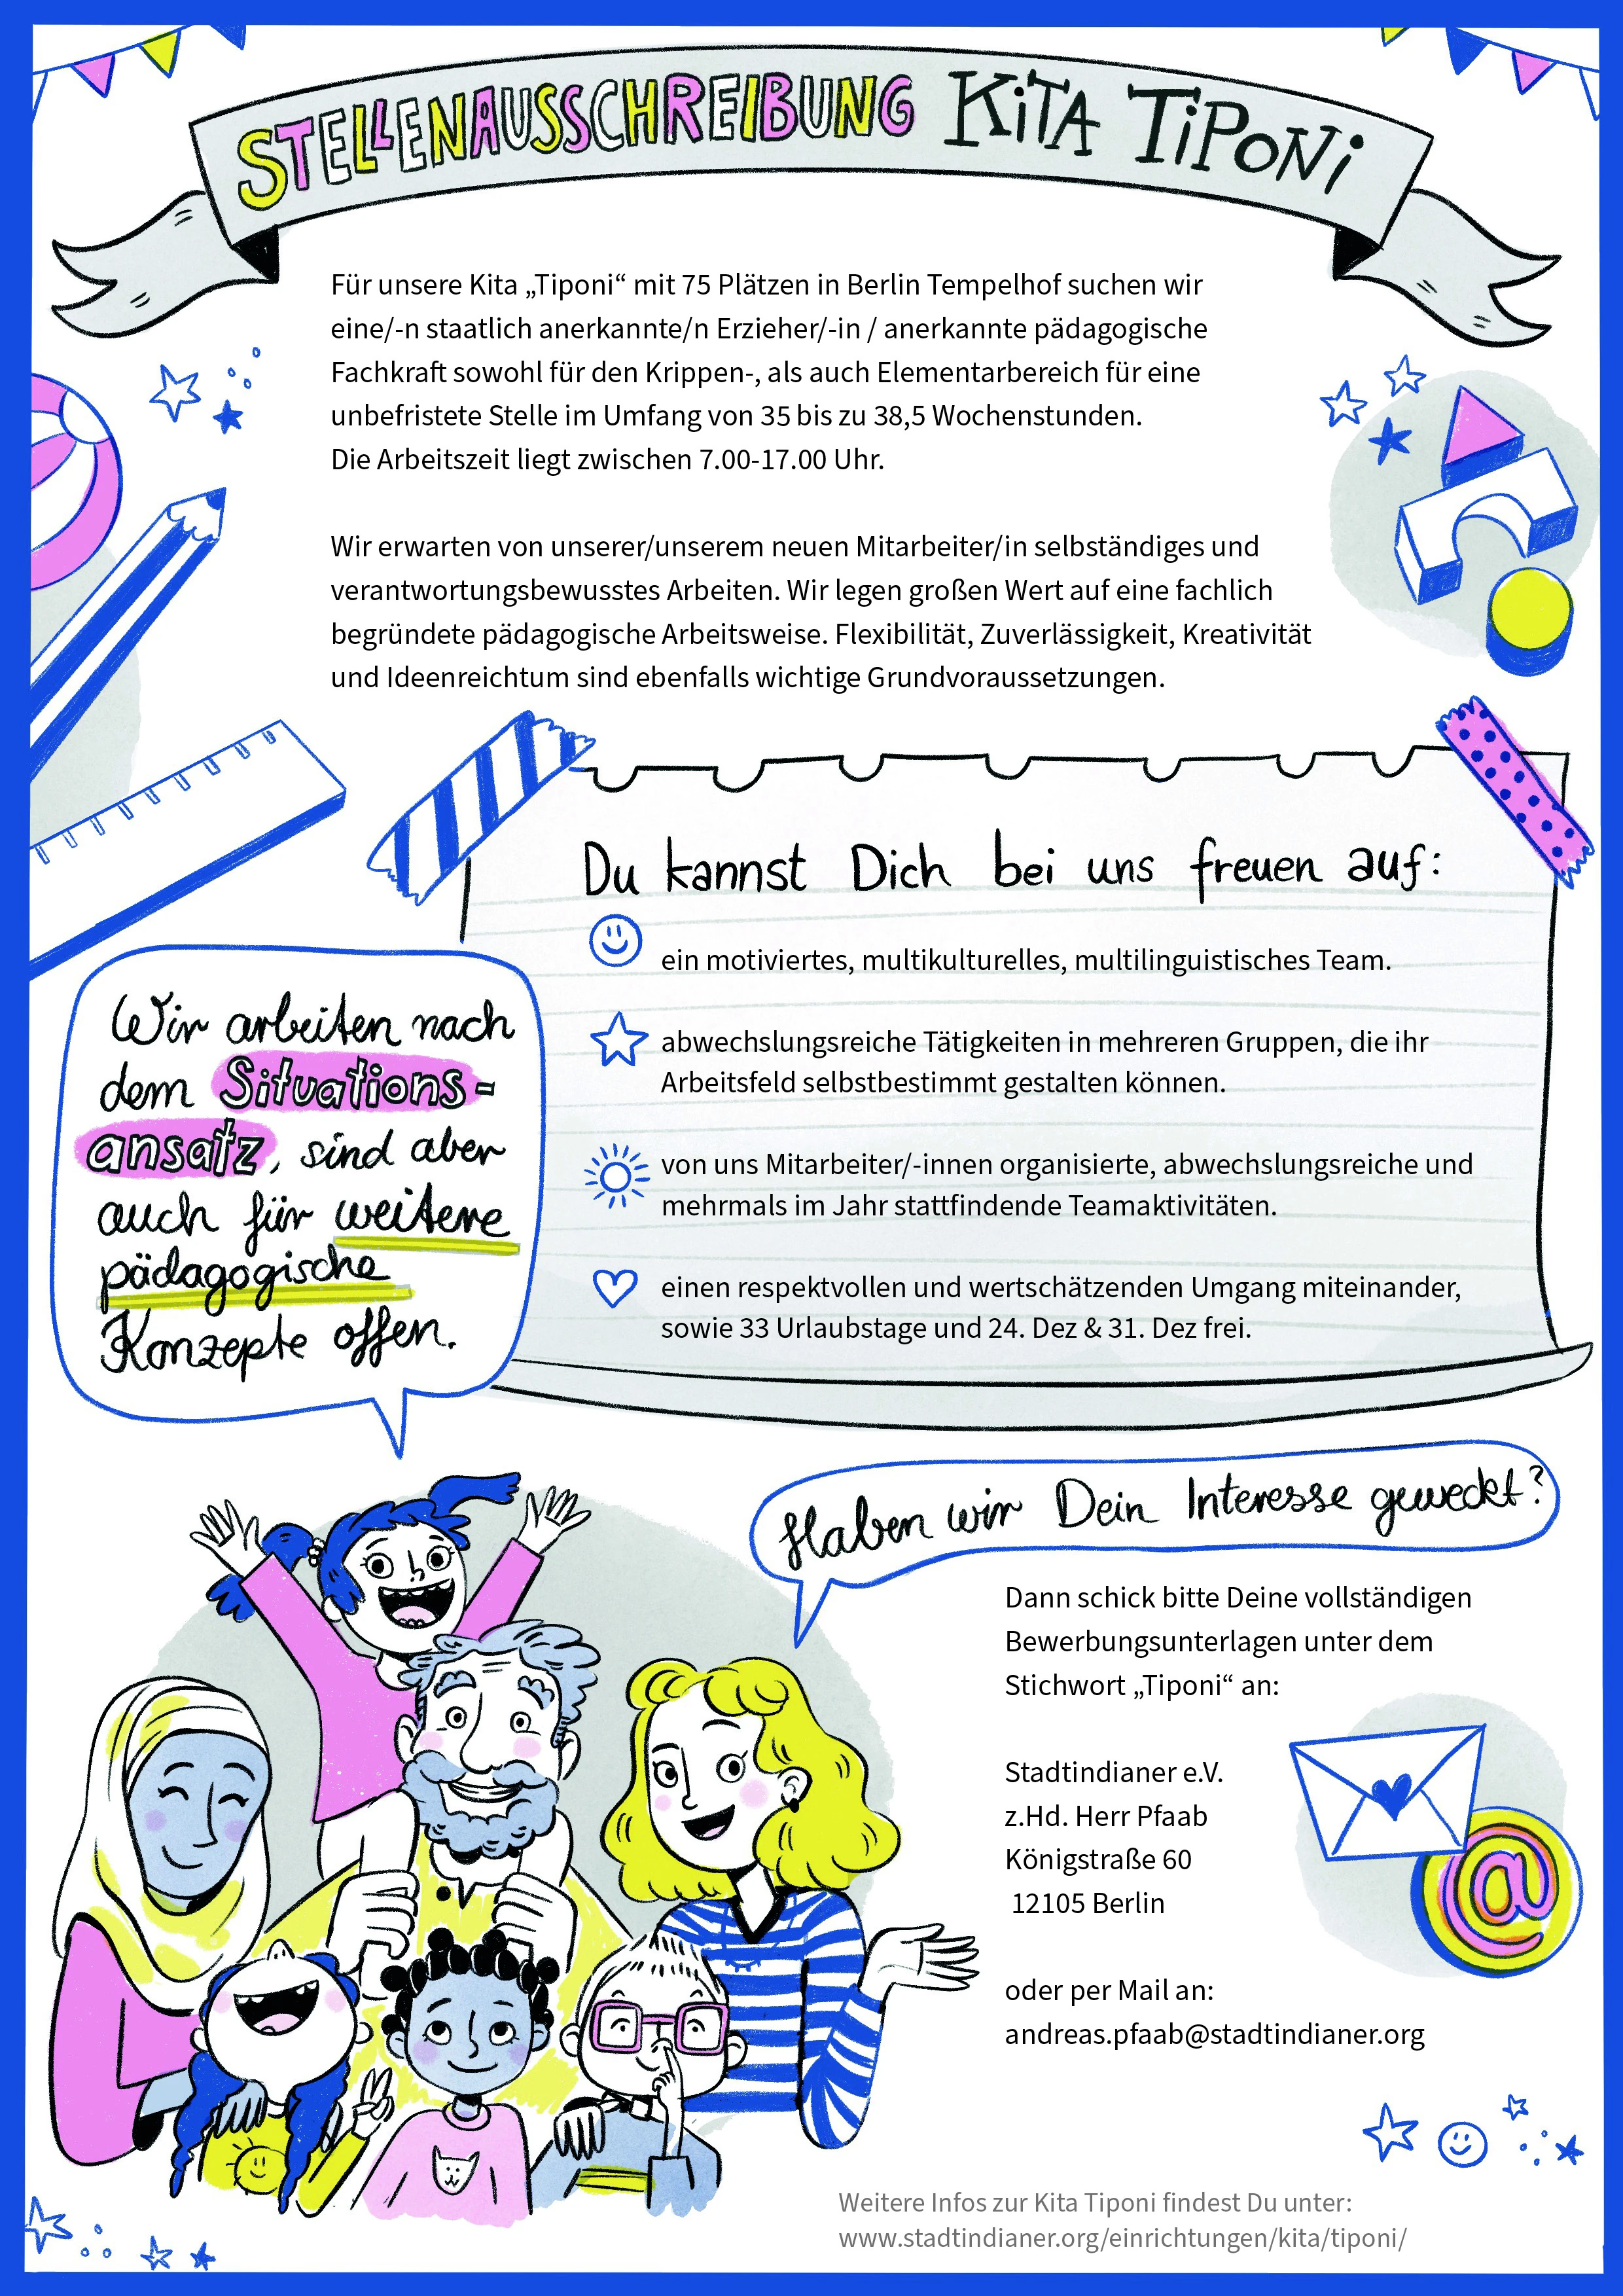 STELLENAUSSCHREIBUNG KiTA TiPONi
Für unsere Kita „Tiponi“ mit 75 Plätzen in Berlin Tempelhof suchen wir
eine/-n staatlich anerkannte/n Erzieher/-in / anerkannte pädagogische
Fachkraft sowohl für den Krippen-, als auch Elementarbereich für eine
unbefristete Stelle im Umfang von 35 bis zu 38,5 Wochenstunden.
Die Arbeitszeit liegt zwischen 7.00-17.00 Uhr.
Wir erwarten von unserer/unserem neuen Mitarbeiter/in selbständiges und
verantwortungsbewusstes Arbeiten. Wir legen großen Wert auf eine fachlich
begründete pädagogische Arbeitsweise. Flexibilität, Zuverlässigkeit, Kreativität
und Ideenreichtum sind ebenfalls wichtige Grundvoraussetzungen.
Du kannst Dich bei uns freuen auf:
ein motiviertes, multikulturelles, multilinguistisches Team.
abwechslungsreiche Tätigkeiten in mehreren Gruppen, die ihr
Arbeitsfeld selbstbestimmt gestalten können.
von uns Mitarbeiter/-innen organisierte, abwechslungsreiche und
mehrmals im Jahr stattfindende Teamaktivitäten.
einen respektvollen und wertschätzenden Umgang miteinander,
sowie 33 Urlaubstage und 24. Dez & 31. Dez frei.
Wir arbeiten nach
dem Situations-
ansatz, sind aber
auch für weitere
pädagogische
Konzepte offen.
Haben wir Dein Interesse geweckt?
Dann schick bitte Deine vollständigen
Bewerbungsunterlagen unter dem
Stichwort „Tiponi“ an:
Stadtindianer e.V.
z.Hd. Herr Pfaab
Königstraße 60
12105 Berlin
@
oder per Mail an:
andreas.pfaab@stadtindianer.org
Weitere Infos zur Kita Tiponi findest Du unter:
www.stadtindianer.org/einrichtungen/kita/tiponi/